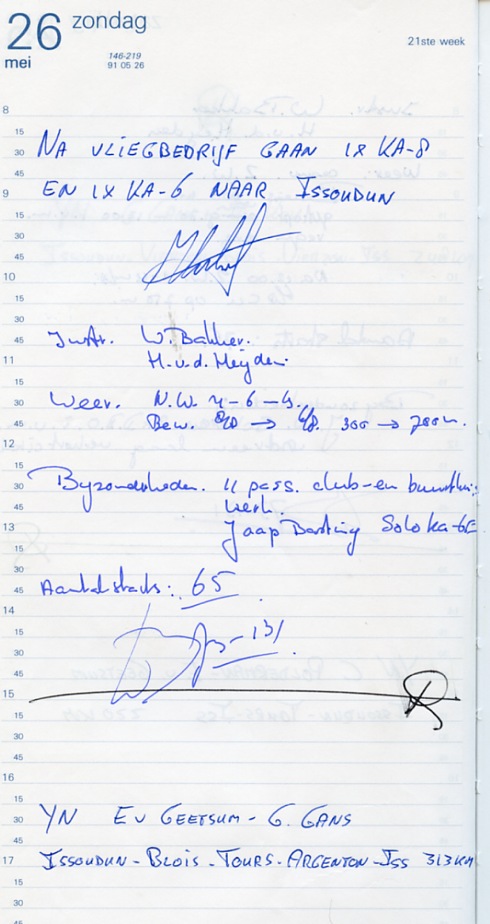 26 zondag
mei
146-219
91 05 26
21ste week
8
15
30
45
9
15
30
45
10
15
30
45
11
15
30
45
12
15
30
45
13
15
30
45
14
15
30
45
15
15
30
45
16
15
30
45
17
15
30
45
NA VLIEGBEDRIJF GAAN 1X KA-8
EN 1X KA-6 NAAR ISSOUDUN
Instr. W. Bakker.
H.v.d. Heyden.
Weer. N.W. 4-6-4.
Bew. 8/8 → 300 → 700 m.
Byzonderheden. 11 pass. club-en
werk.
Jaap Barting Solo ka-6E
Aantal starts: 65
YN EV GEETSUM - G. GANS
ISSOUDUN - BLOIS - TOURS - ARGENTON - ISS 313KM